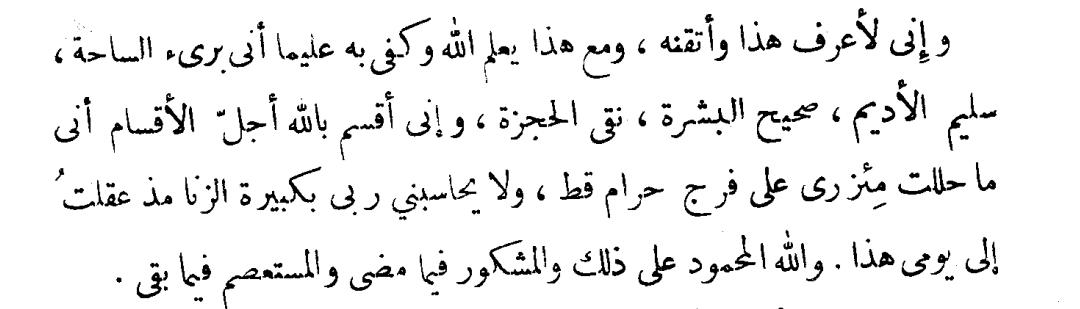 وإنى لأعرف هذا وأتقنه ، ومع هذا يعلم الله وكفى به عليما أنى برىء الساحة ،
سليم الأديم ، صحيح البشرة ، نقى الحجزة ، وإنى أقسم بالله أجلّ الأقسام أنى
ما حللت مِئزرى على فرج حرام قط ، ولا يحاسبني ربى بكبيرة الزنا مذ عقلتُ
إلى يومى هذا . والله المحمود على ذلك والمشكور فيما مضى والمستعصم فيما بقى .